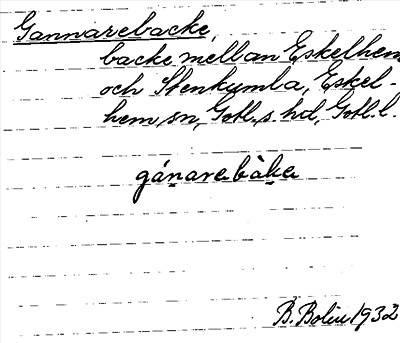 Gannarebacke,
backe mellan Eskelhem
och Stenkumla, Eskel-
hem sn, Gotl. s. hd, Gotl. l.
gánarebàka
B. Bolin 1932